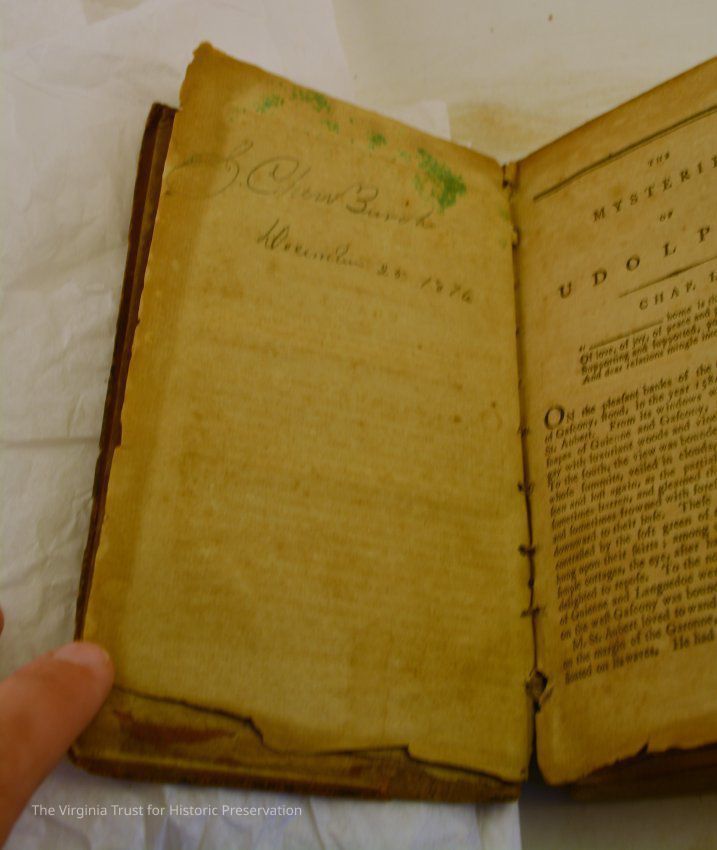 Chew Burch
December 25 1876
THE
MYSTERIE
OF
UDOLP
CHAP. I
home is the
Of love, of joy, of peace and
Supporting and supported,
And dear relations mingle into
ON the pleasant banks of the
of Gascony, stood, in the year 158
St. Aubert. From its windows
of Guienne and Gascony,
gay with luxuriant woods and vines
To the south, the view was bounded
whose summits, veiled in clouds
seen and lost again, as the partial
sometimes barren, and gleamed
and sometimes frowned with
downward to their base. These
contrasted by the soft green of
hung upon their skirts; among
simple cottages, the eye, after
delighted to repose. To the
of Guienne and Languedoc were
on the west Gascony was bounded
M. St. Aubert loved to wander
on the margin of the Garonne,
floated on its waves. He had
The Virginia Trust for Historic Preservation